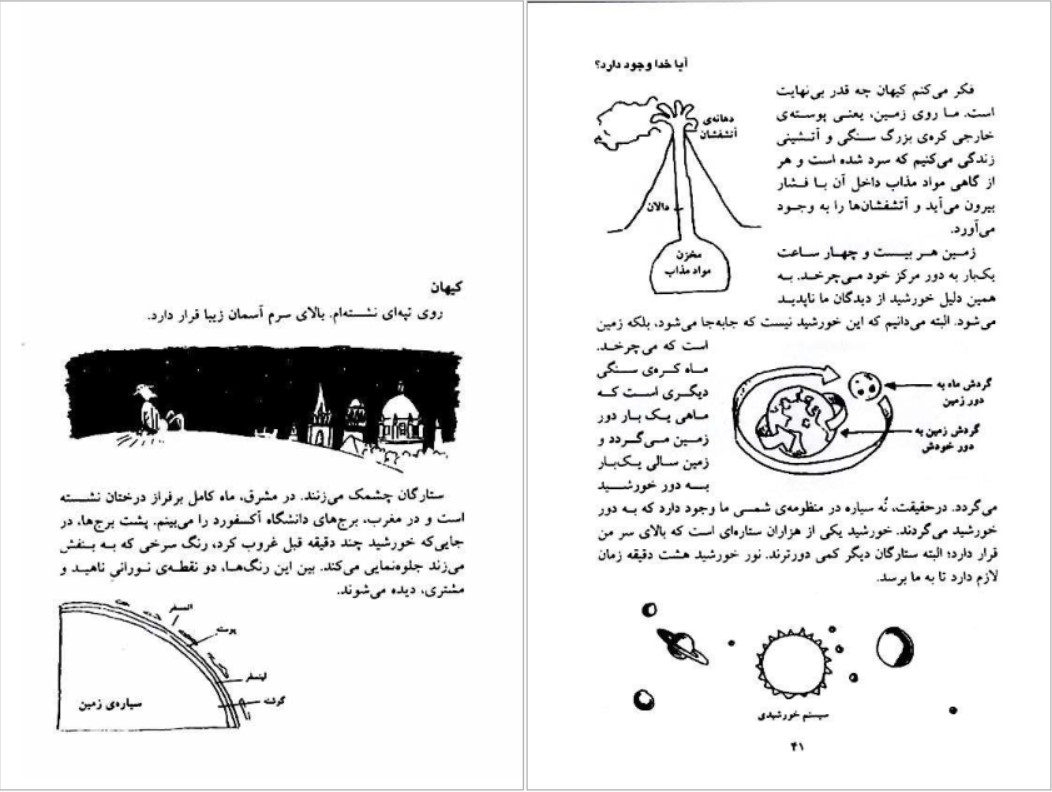 کیهان
روی تپه‌ای نشسته‌ام. بالای سرم آسمان زیبا قرار دارد.
ستارگان چشمک می‌زنند. در مشرق، ماه کامل برفراز درختان نشسته
است و در مغرب، برج‌های دانشگاه آکسفورد را می‌بینم. پشت برج‌ها، در
جایی‌که خورشید چند دقیقه قبل غروب کرد، رنگ سرخی که به بنفش
می‌زند جلوه‌نمایی می‌کند. بین این رنگ‌ها، دو نقطه‌ی نورانیِ ناهید و
مشتری، دیده می‌شوند.
پوسته
گوشته
سیاره‌ی زمین
آیا خدا وجود دارد؟
فکر می‌کنم کیهان چه قدر بی‌نهایت
است. ما روی زمین، یعنی پوسته‌ی
خارجی کره‌ی بزرگ سنگی و آتشینی
زندگی می‌کنیم که سرد شده است و هر
از گاهی مواد مذاب داخل آن با فشار
بیرون می‌آید و آتشفشان‌ها را به وجود
می‌آورد.
دهانه‌ی
آتشفشان
دالان
مخزن
مواد مذاب
زمین هر بیست و چهار ساعت
یک‌بار به دور مرکز خود می‌چرخد. به
همین دلیل خورشید از دیدگان ما ناپدید
می‌شود. البته می‌دانیم که این خورشید نیست که جابه‌جا می‌شود، بلکه زمین
است که می‌چرخد.
ماه کره‌ی سنگی
دیگری است که
ماهی یک بار دور
زمین می‌گردد و
زمین سالی یک‌بار
به دور خورشید
گردش ماه به
دور زمین
گردش زمین به
دور خودش
می‌گردد. درحقیقت، نُه سیاره در منظومه‌ی شمسی ما وجود دارد که به دور
خورشید می‌گردند. خورشید یکی از هزاران ستاره‌ای است که بالای سر من
قرار دارد؛ البته ستارگان دیگر کمی دورترند. نور خورشید هشت دقیقه زمان
لازم دارد تا به ما برسد.
سیستم خورشیدی
۴۱